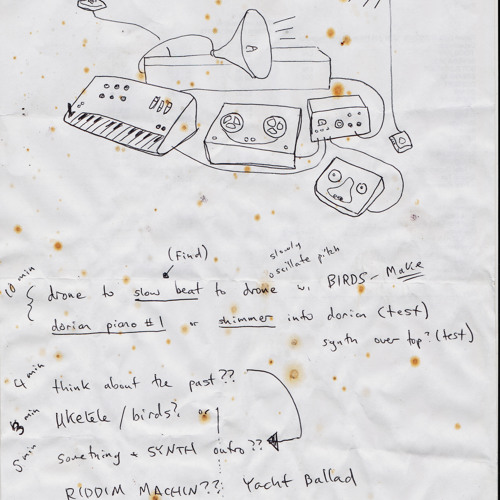 (Find)
slowly
oscillate pitch
10 min
drone to slow beat to drone w. BIRDS - Make
dorian piano #1 or shimmer into dorian (test)
synth over top? (test)
4 min think about the past??
3 min Ukelele / birds? or
5 min something + SYNTH outro??
RIDDIM MACHIN?? Yacht Ballad